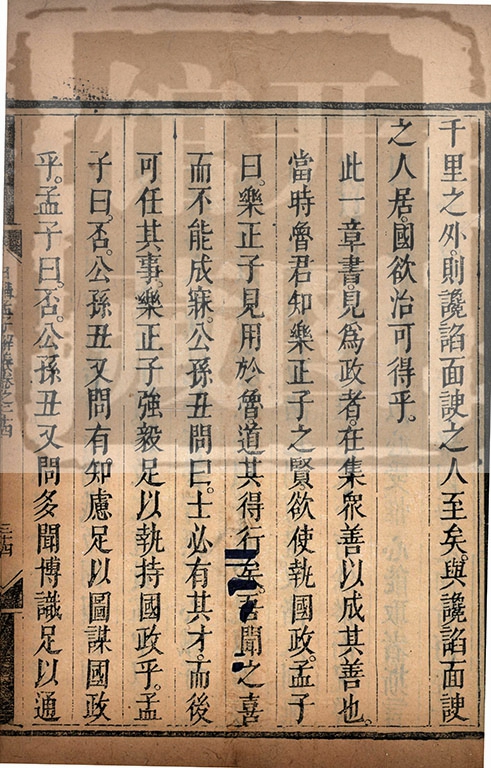 千里之外。則讒諂面諛之人至矣。與讒諂面諛
之人居。國欲治可得乎。
此一章書。見為政者。在集衆善以成其善也。
當時魯君知樂正子之賢欲使執國政。孟子
曰。樂正子見用於魯道其得行矣。吾聞之喜
而不能成寐。公孫丑問曰。士必有其才。而後
可任其事。樂正子強毅足以執持國政乎。孟
子曰。否。公孫丑又問有知慮足以圖謀國政
乎。孟子曰。否。公孫丑又問多聞博識足以通